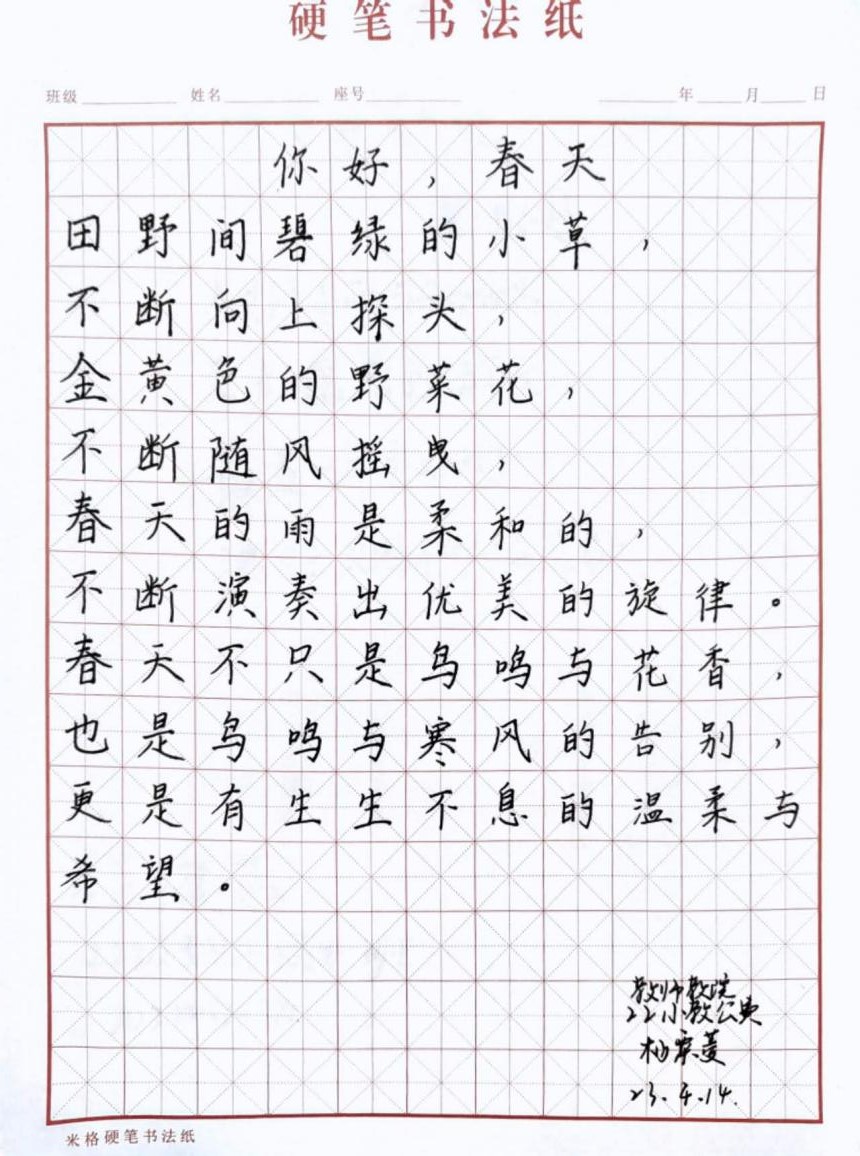 硬笔书法纸
班级 姓名 座号 年 月 日
你好，春天
田野间碧绿的小草，
不断向上探头，
金黄色的野菜花，
不断随风摇曳，
春天的雨是柔和的，
不断演奏出优美的旋律。
春天不只是鸟鸣与花香，
也是鸟鸣与寒风的告别，
更是有生生不息的温柔与
希望。
教师教院
22小教公费
杨
23.4.14.
米格硬笔书法纸